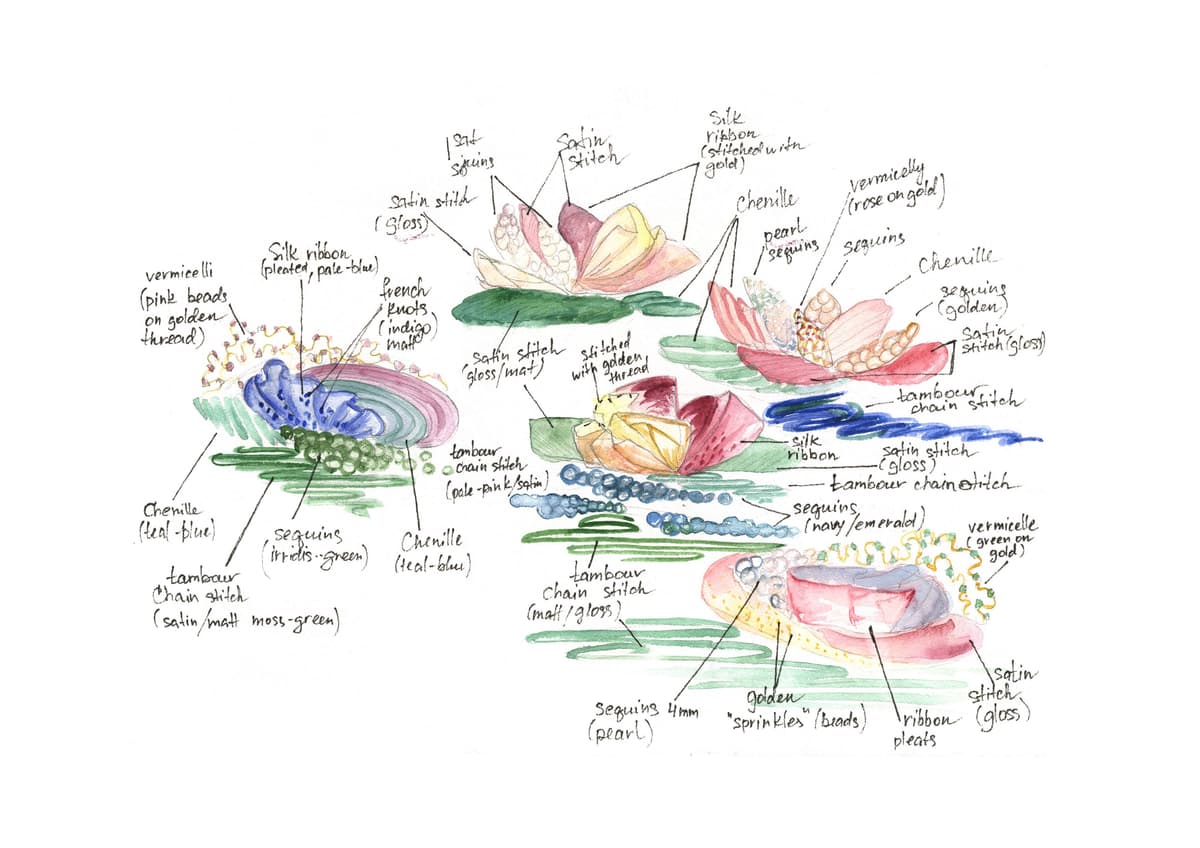 sat
squins
satin
stitch
silk
ribbon
(stitched with
gold)
satin stitch
(gloss)
chenille
vermicelly
(rose on gold)
pearl
sequins
sequins
Chenille
sequins
(golden)
satin
stitch (gloss)
vermicelli
(pink beads
on golden
thread)
Silk ribbon
(pleated, pale-blue)
french
knots
(indigo
matt)
satin stitch
gloss/mat)
stitched
with golden
thread
tambour
chain stitch
silk
ribbon
satin stitch
(gloss)
tambour chain stitch
tambour
chain stitch
(pale-pink/satin)
sequins
(navy/emerald)
vermicelle
(green on
gold)
Chenille
(teal-blue)
sequins
(irridis-green)
Chenille
(teal-blue)
tambour
Chain stitch
(satin/matt moss-green)
tambour
chain stitch
(matt/gloss)
sequins 4mm
(pearl)
golden
"sprinkles" (beads)
ribbon
pleats
satin
stitch
(gloss)